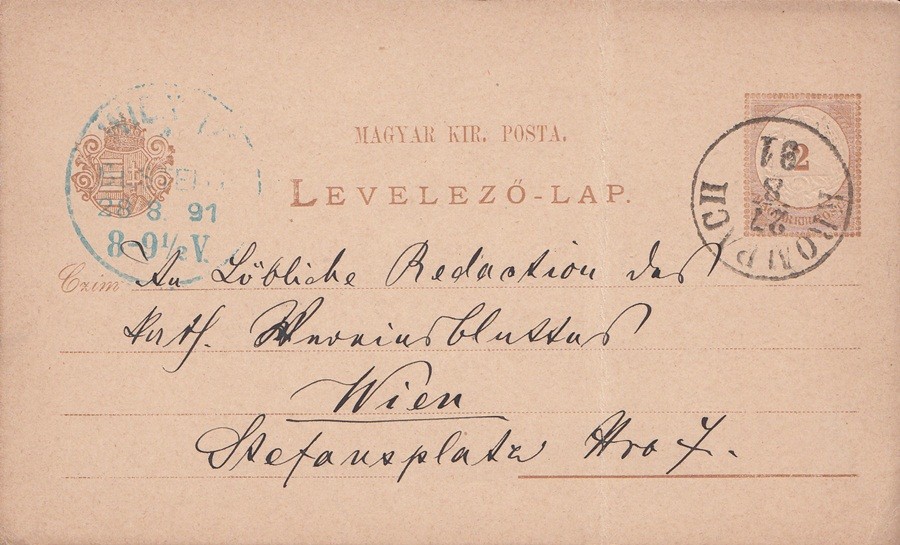 MAGYAR KIR. POSTA.
LEVELEZŐ-LAP.
2
KROMPACH
27
8
91
28 8. 91
8-9½V.
Czim
An Löbliche Redaction des
kath. Vereinsblattes
Wien
Stefansplatz Nro 7.